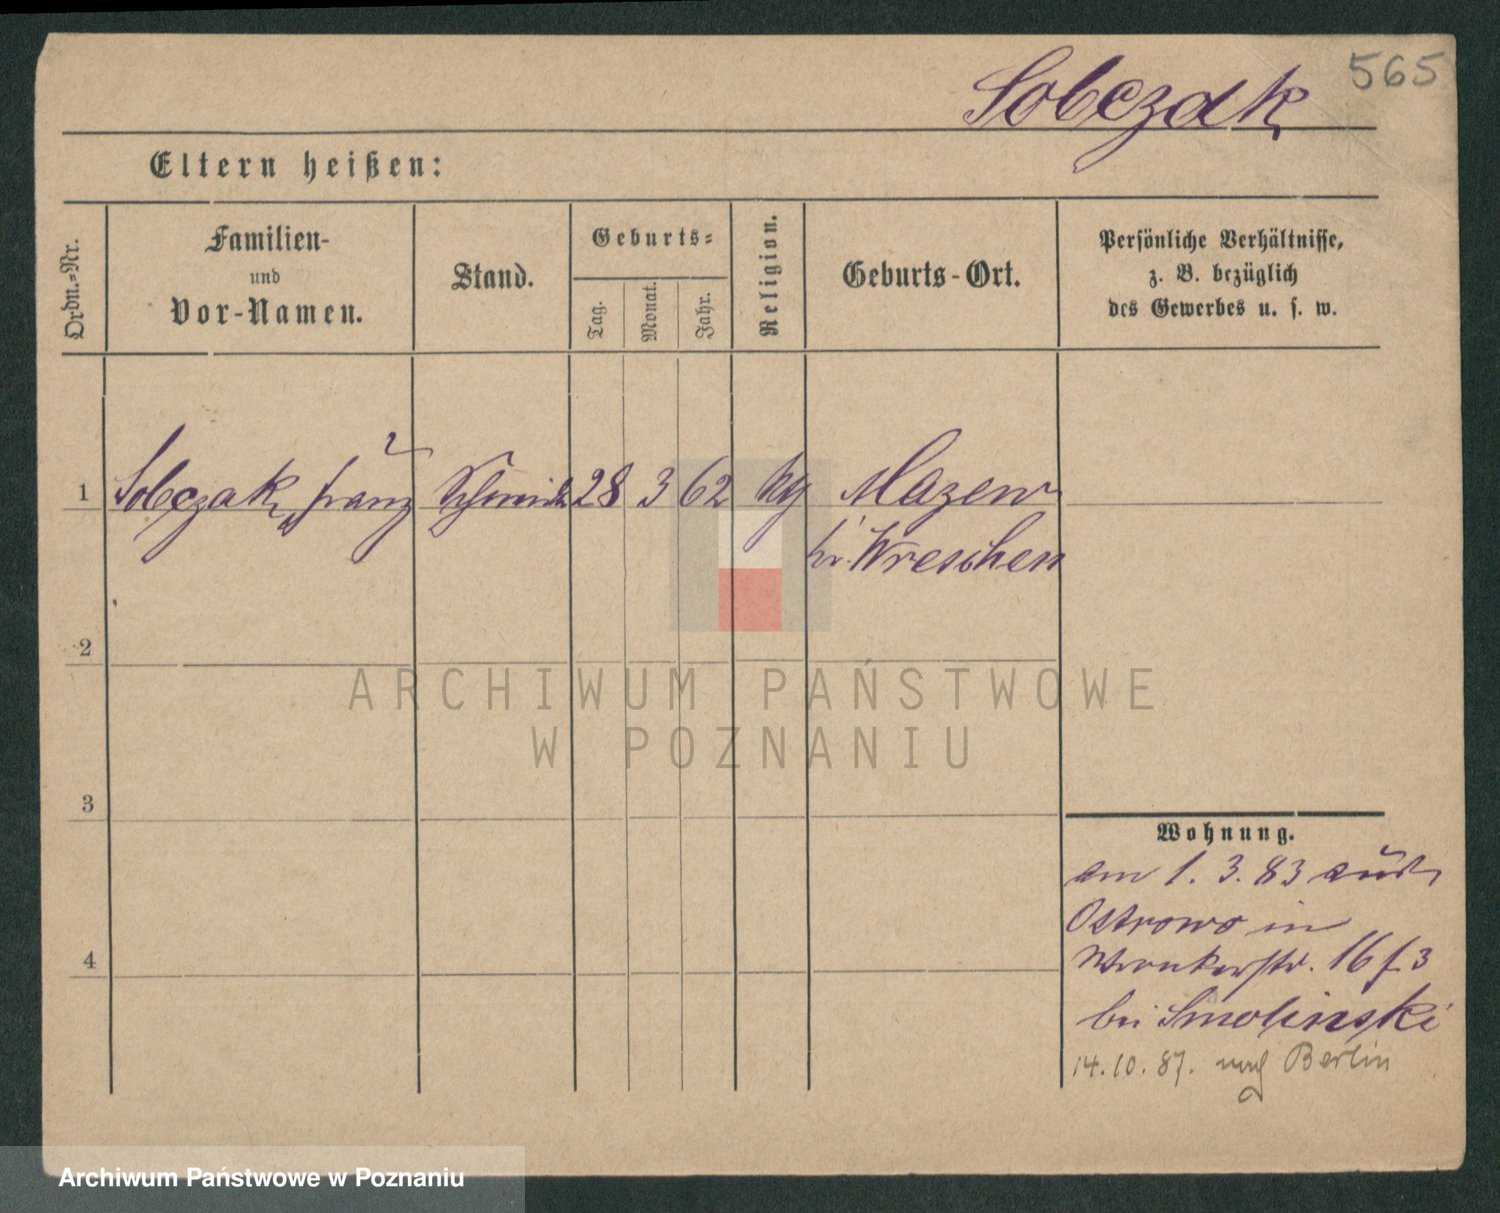 565
Sobczak
Eltern heißen:
Ordn.-Nr.
Familien-
und
Vor-Namen.
Stand.
Geburts-
Tag.
Monat.
Jahr.
Religion.
Geburts-Ort.
Persönliche Verhältnisse,
z. B. bezüglich
des Gewerbes u. s. w.
1 Sobczak, Franz Schmidt 28 3 62 Mazew
kr. Wreschen
2
3
4
ARCHIWUM PAŃSTWOWE
W POZNANIU
Wohnung.
am 1. 3. 83 aus
Ostrowo in
Wronkerstr. 16 f 3
bei Smolinski
14. 10. 87. nach Berlin
Archiwum Państwowe w Poznaniu